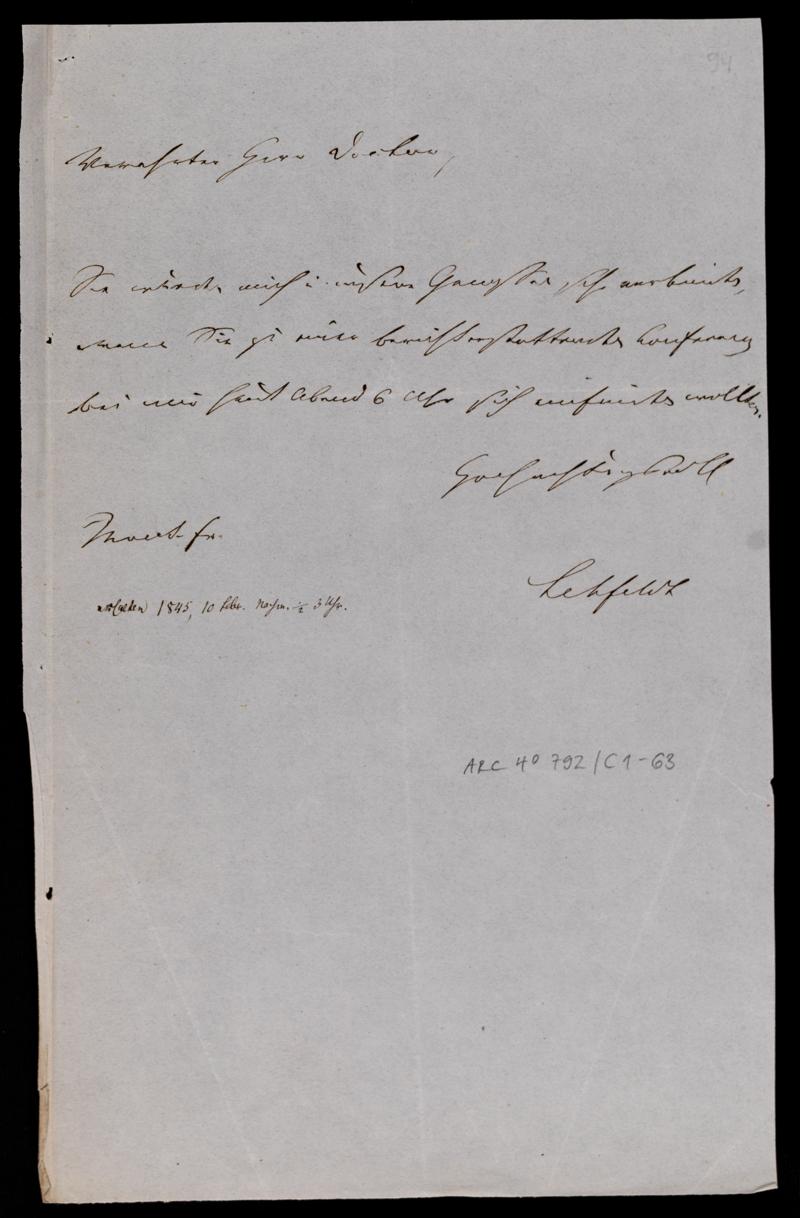 94
Verehrter Herr Doctor,
Sie würden mich u. unsere Genossen sehr verbinden,
wenn Sie zu einer berichterstattenden Conferenz
bei mir heut Abend 6 Uhr sich einfinden wollten.
Hochachtungsvoll
Lehfeldt
erhalten 1845, 10 Febr. Nachm. ½ 3 Uhr.
ARC 4° 792/C1-63